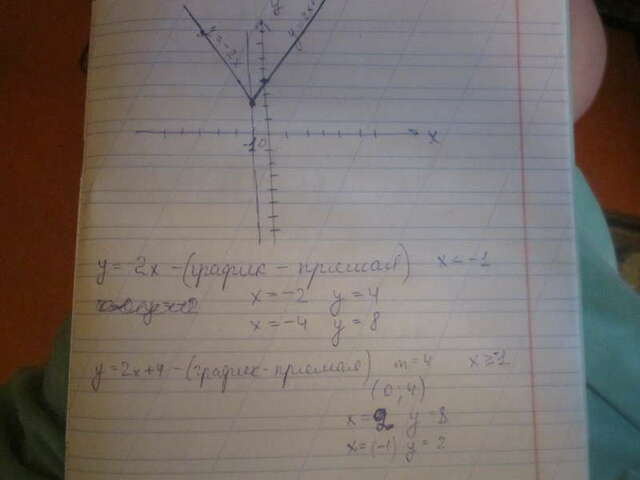 y
y = -2x
y = 2x+4
-1 0 x
y = 2x - (график - прямая) x < -1
x = -2 y = 4
x = -4 y = 8
y = 2x+4 - (график - прямая) m = 4 x ≥ -1
(0; 4)
x = 2 y = 8
x = (-1) y = 2